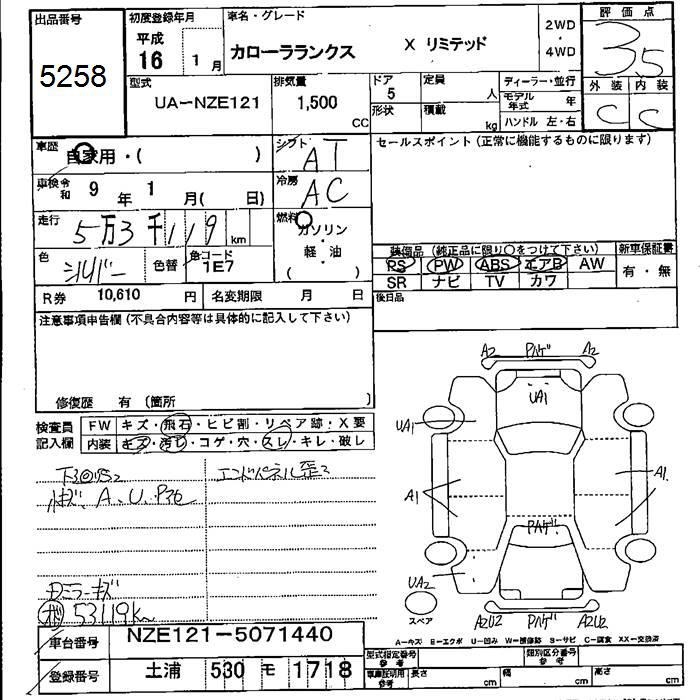 出品番号
5258
初度登録年月
平成
16 1月
車名・グレード
カローラランクス X リミテッド
2WD
・
4WD
評価点
3.5
外装 内装
C C
型式
UA-NZE121
排気量
1,500
CC
ドア
5
定員
人
形状
積載
kg
ディーラー・並行
モデル年式 年
ハンドル 左・右
車歴
自家用・( )
車検 令和 9年 1月( 日)
走行
5万3千119 km
色
シルバー
色替
色コード
1E7
シフト
AT
冷房
AC
燃料
ガソリン
軽・油
( )
R券 10,610 円 名変期限 月 日
セールスポイント(正常に機能するものに限ります)
装備品(純正品に限り○をつけて下さい)
PS PW ABS エアB AW
SR ナビ TV カワ
新車保証書
有・無
後日品
注意事項申告欄(不具合内容等は具体的に記入して下さい)
修復歴 有(箇所 )
検査員
記入欄
FW キズ・飛石・ヒビ割・リペア跡・X要
内装 キズ・汚レ・コゲ・穴・スレ・キレ・破レ
エンドパネル歪2
A.U.
ミラーキズ
53119km
A2 Pハゲ A2
UA1
UA1
A1
A1
Pハゲ
UA2
スペア
A2U2 Pハゲ A2U2
A-キズ E-エクボ U-凹み W-補修跡 S-サビ C-腐食 XX-交換済
車台番号 NZE121-5071440
登録番号 土浦 530 モ 1718
型式指定番号
参考
類別区分番号
参考
車庫証明用
参考
長さ cm 幅 cm 高さ cm